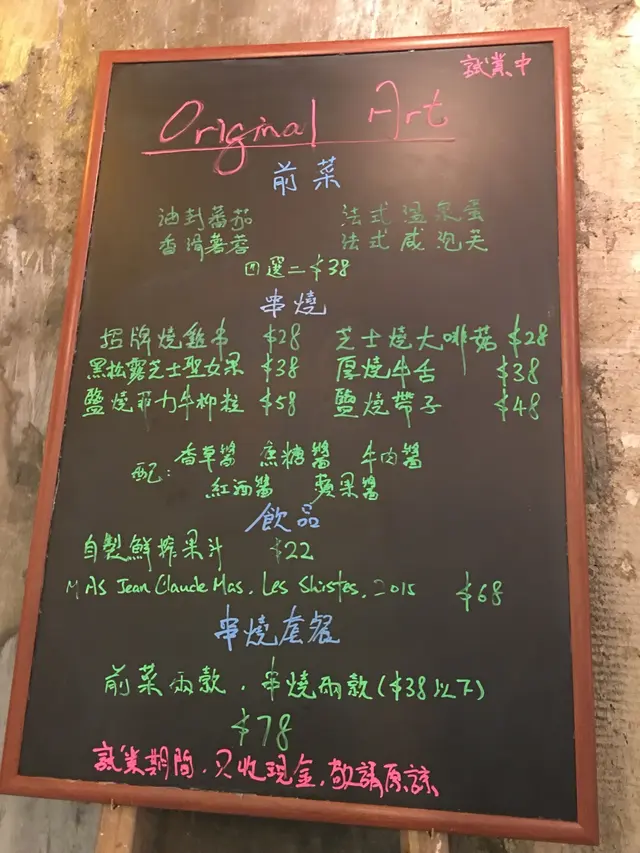 試業中
Original Art
前菜
油封蕃茄 法式溫泉蛋
香滑薯蓉 法式咸泡芙
四選二 $38
串燒
招牌燒雞串 $28 芝士燒大啡菇 $28
黑松露芝士聖女果 $38 厚燒牛舌 $38
鹽燒菲力牛柳粒 $58 鹽燒帶子 $48
配: 香草醬 焦糖醬 牛肉醬
紅酒醬 蘋果醬
飲品
自製鮮搾果汁 $22
MAS Jean Claude Mas. Les Shistes. 2015 $68
串燒套餐
前菜兩款. 串燒兩款 ($38以下)
$78
試業期間, 只收現金, 敬請原諒